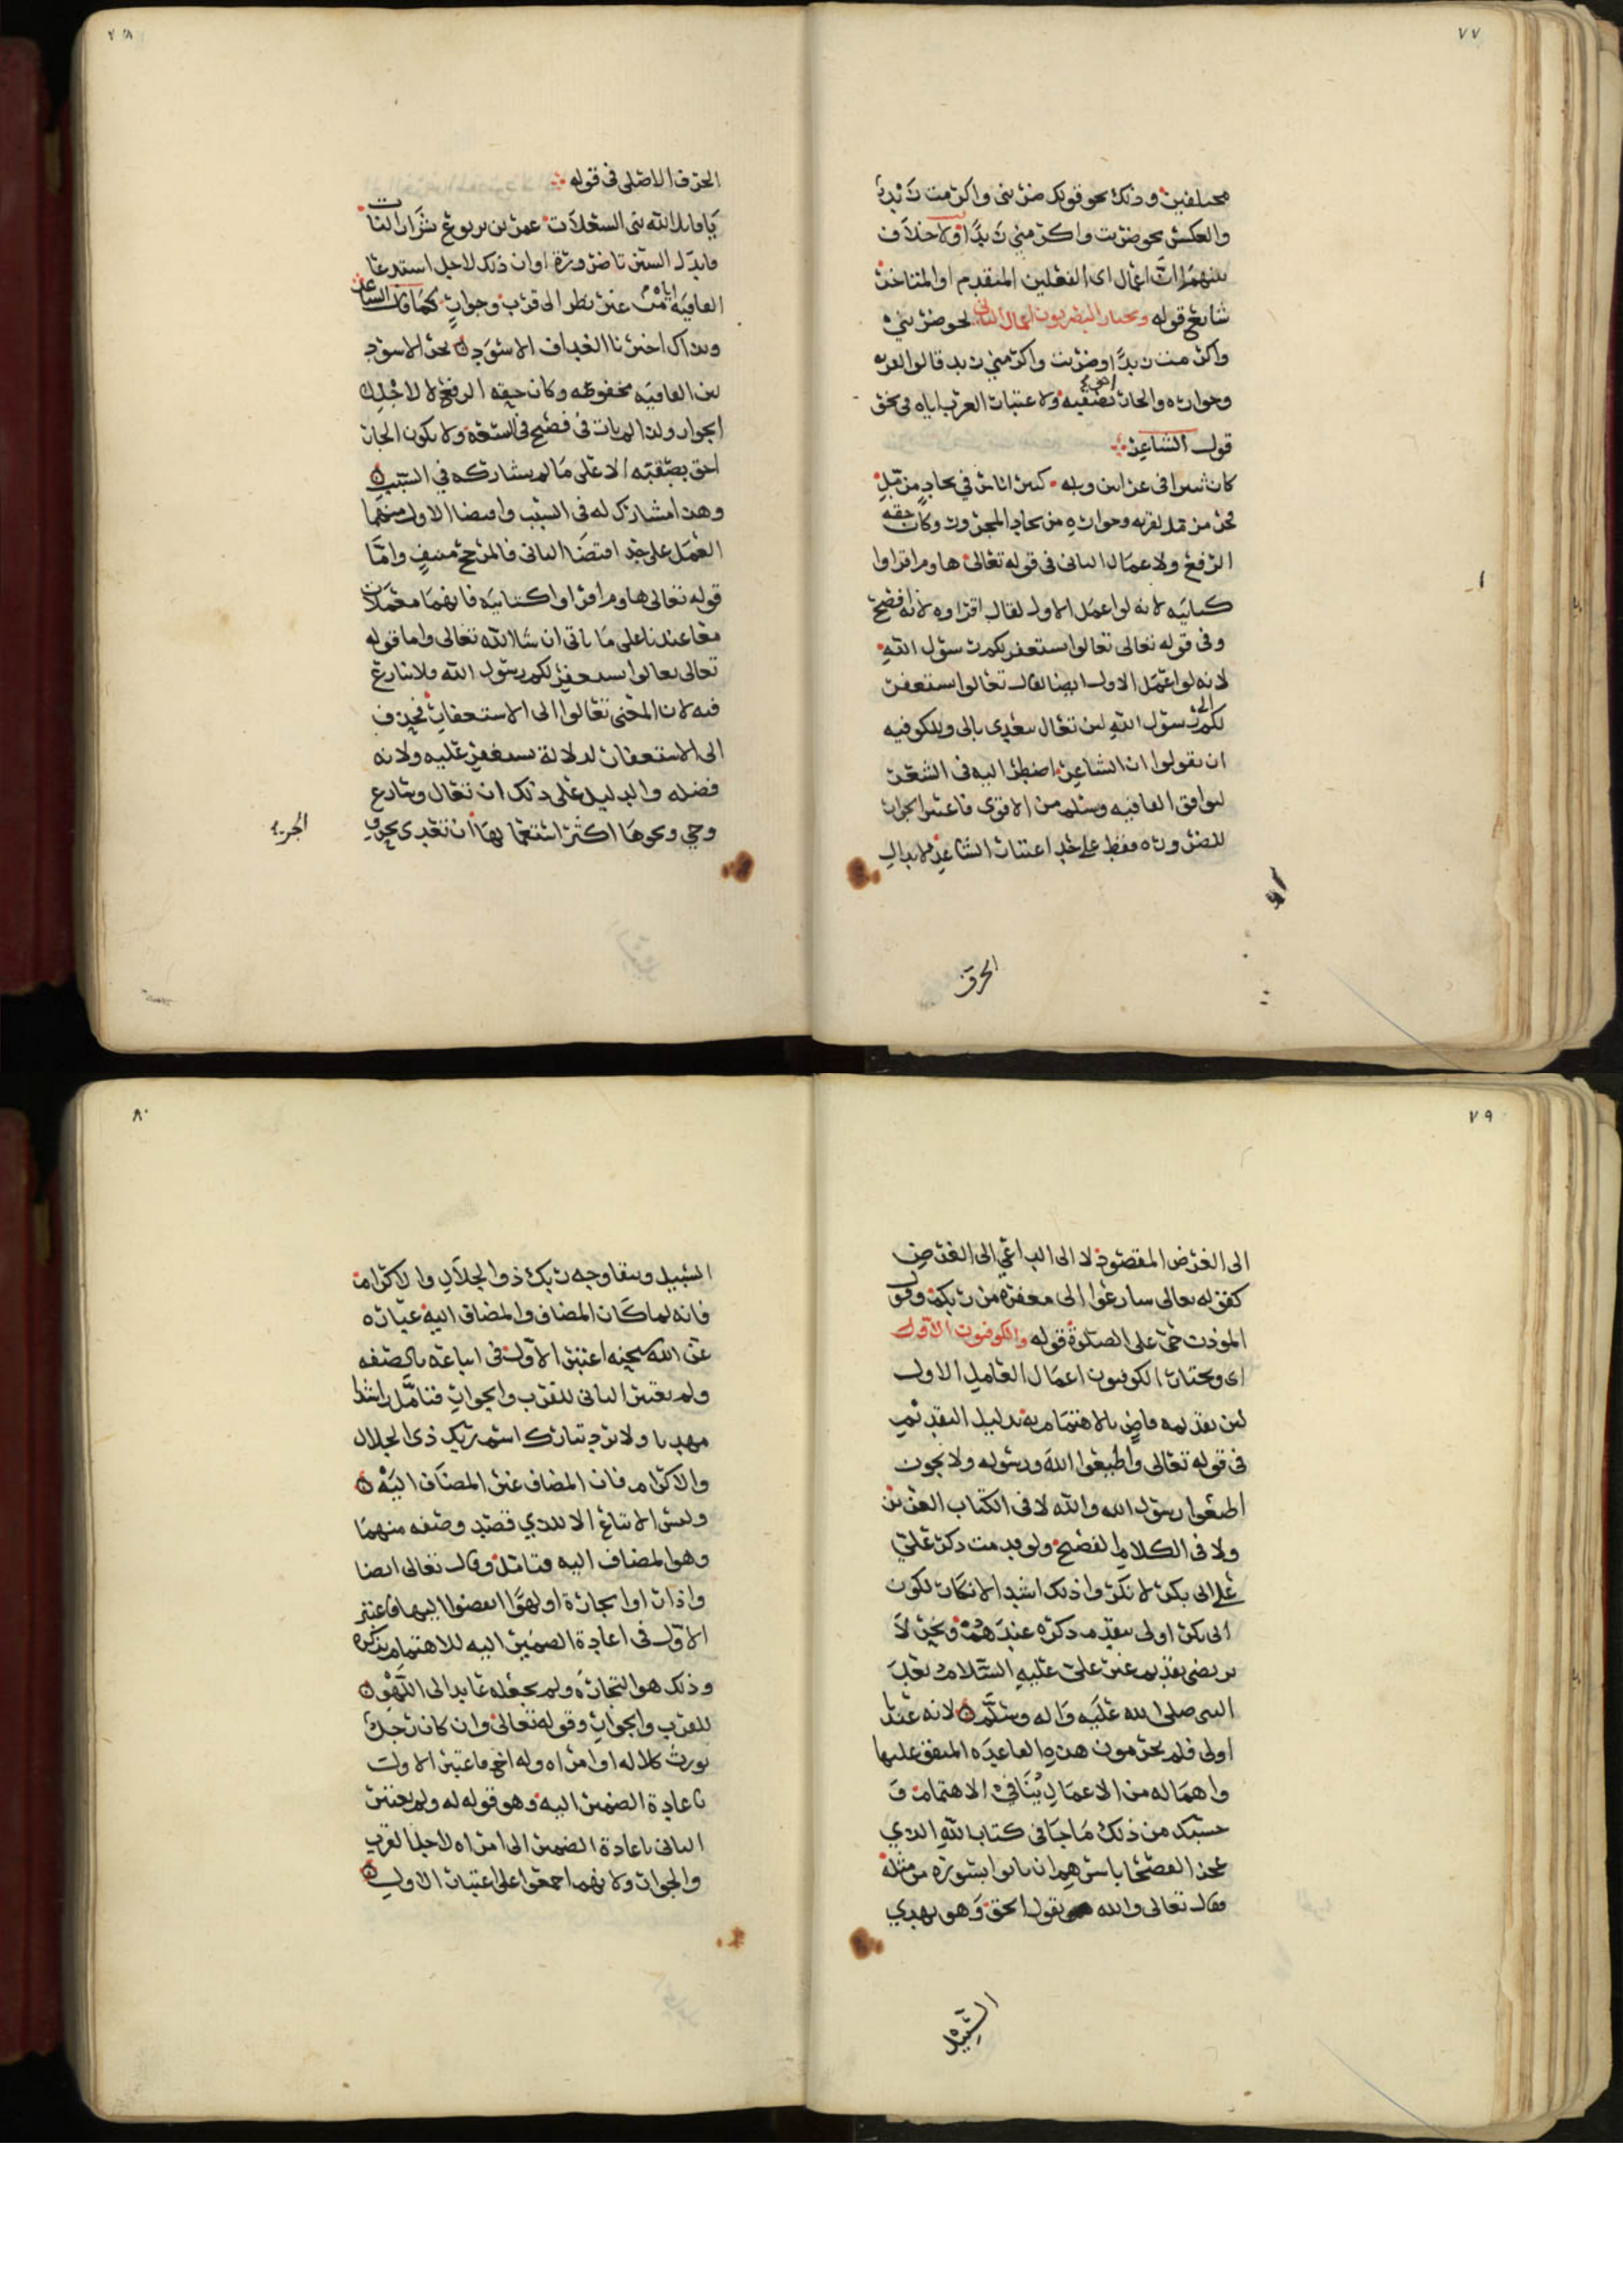 ٧٧
مختلفين وذلك نحو قولك ضربنى واكرمت زيدا
والعكس نحو ضربت واكرمني زيدا ولا خلاف
بينهم ان اعمال اى الفعلين المتقدم او المتاخر
شايع قوله ويختار البصريون اعمال الثانى نحو ضربنى
واكرمت زيدا وضربت واكرمني زيد قالوا لقربه
وجواره والجار احق بصقبه ولاعتبار العرب اياه في نحو
قول الشاعر
كان ثبيرا فى عرانين وبله كبير اناس في بجاد مزمل
فجر مزمل لقربه وجواره من بجاد المجرور وكان حقه
الرفع ولاعمال الثانى فى قوله تعالى هاوم اقراوا
كتابيه لانه لو اعمل الاول لقال اقراوه لانه افصح
وفى قوله تعالى تعالوا يستغفر لكم رسول الله
لانه لو اعمل الاول ايضا لقال تعالوا يستغفر
لكم الى رسول الله لان تعال يتعدى بالى ولكوفيه
ان يقولوا ان الشاعر اضطر اليه فى الشعر
ليوافق القافيه وسلم من الاقوى فاعتبر الجوار
للضرورة فقط على حد اعتبار الشاعر لابدال
الحرف
٧٨
الحرف الاصلى فى قوله
يا قاتل الله بنى السعلات عمرو بن يربوع شرار النات
فابدل السين تا ضرورة او ان ذلك لاجل استدعا
القافيه اياه من غير نظر الى قرب وجوار كما قال الشاعر
وبذاك اخبرنا الغداف الاسود بجر الاسود
لان القافيه مخفوظه وكان حقه الرفع لا لاجل
الجوار ولذا لم يات فى فصيح فى السعة ولا يكون الجار
احق بصقبه الا على ما لم يشاركه في السبب
وهذا مشارك له فى السبب واقتضا الاول منهما
العمل على حد اقتضا الثانى فالمرجح منتف واما
قوله تعالى هاوم اقراوا كتابيه فانهما معملان
معا عندنا على ما ياتى ان شا الله تعالى واما قوله
تعالى تعالوا يستغفر لكم رسول الله فلا تنازع
فيه لان المعنى تعالوا الى الاستغفار فحذف
الى الاستغفار لدلالة يستغفر عليه ولانه
فضله والدليل على ذلك ان تعال وسارع
وحي ونحوها اكثر استعمالها ان تعدى بحرف
الجر
٧٩
الى الغرض المقصود لا الى الداعي الى الغرض
كقوله تعالى سارعوا الى مغفرة من ربكم وقول
الموذن حى على الصلوة قوله والكوفيون الاول
اى ويختار الكوفيون اعمال العامل الاول
لان تقديمه قاض بالاهتمام به بدليل التقديم
فى قوله تعالى واطيعوا الله ورسوله ولا يجوز
اطيعوا رسول الله والله لا فى الكتاب العزيز
ولا فى الكلام الفصيح ولو قدمت ذكر علي
على ابى بكر لانكروا ذلك اشد الانكار لكون
ابى بكر اولى بتقديم ذكره عندهم ونحن لا
نرتضى تقديم غير علي عليه السلام بعد
النبى صلى الله عليه واله وسلم لانه عندنا
اولى فلم يخرمون هذه القاعده المتفق عليها
واهماله من الاعمال ينافي الاهتمام و
حسبك من ذلك ما جا فى كتاب الله الذي
عجز الفصحا باسرهم ان ياتوا بسورة من مثله
فقال تعالى والله يقول الحق وهو يهدي
السبيل
٨٠
السبيل ويبقا وجه ربك ذو الجلال والاكرام
فانه لما كان المضاف والمضاف اليه عبارة
عن الله سبحنه اعتبر الاول فى اتباعه بالصفه
ولم يعتبر الثانى للقرب والجوار فتامل راشدا
مهديا ولا يرد تبارك اسم ربك ذى الجلال
والاكرام فان المضاف غير المضاف اليه
وليس الاتباع الا للذي قصد وصفه منهما
وهو المضاف اليه فتامل وقال تعالى ايضا
واذا راوا تجارة او لهوا انفضوا اليها فاعتبر
الاول فى اعادة الضمير اليه للاهتمام بذكره
وذلك هو التجاره ولم يجعله عايدا الى اللهو
للقرب والجوار وقوله تعالى وان كان رجل
يورث كلاله او امراه وله اخ فاعتبر الاول
باعادة الضمير اليه وهو قوله له ولم يعتبر
الثانى باعادة الضمير الى امراه لاجل القرب
والجوار ولانهم اجمعوا على اعتبار الاول